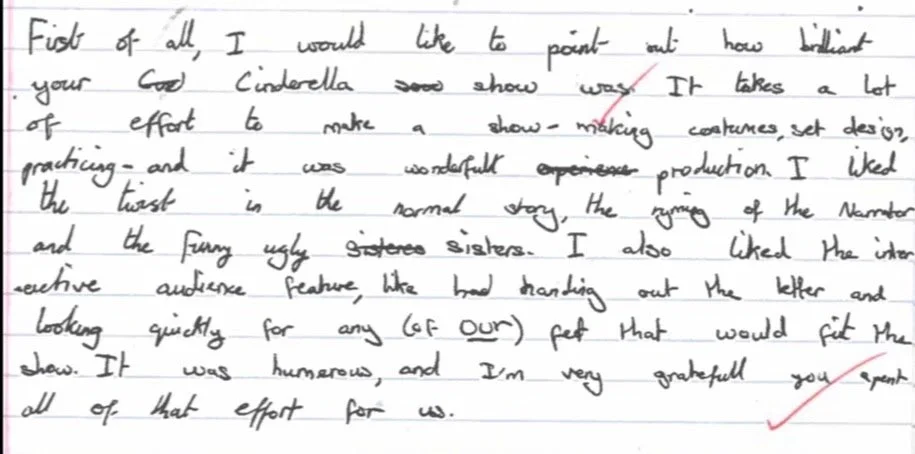 Fist of all, I would like to point out how brilliant
your Cinderella show was. It takes a lot
of effort to make a show - making costumes, set design,
practicing - and it was wonderfull production. I liked
the twist in the normal story, the ryming of the Narrator
and the funny ugly sisters. I also liked the inter
-active audience feature, like handing out the letter and
looking quickly for any (of OUR) feet that would fit the
show. It was humerous, and I'm very gratefull you spent
all of that effort for us.